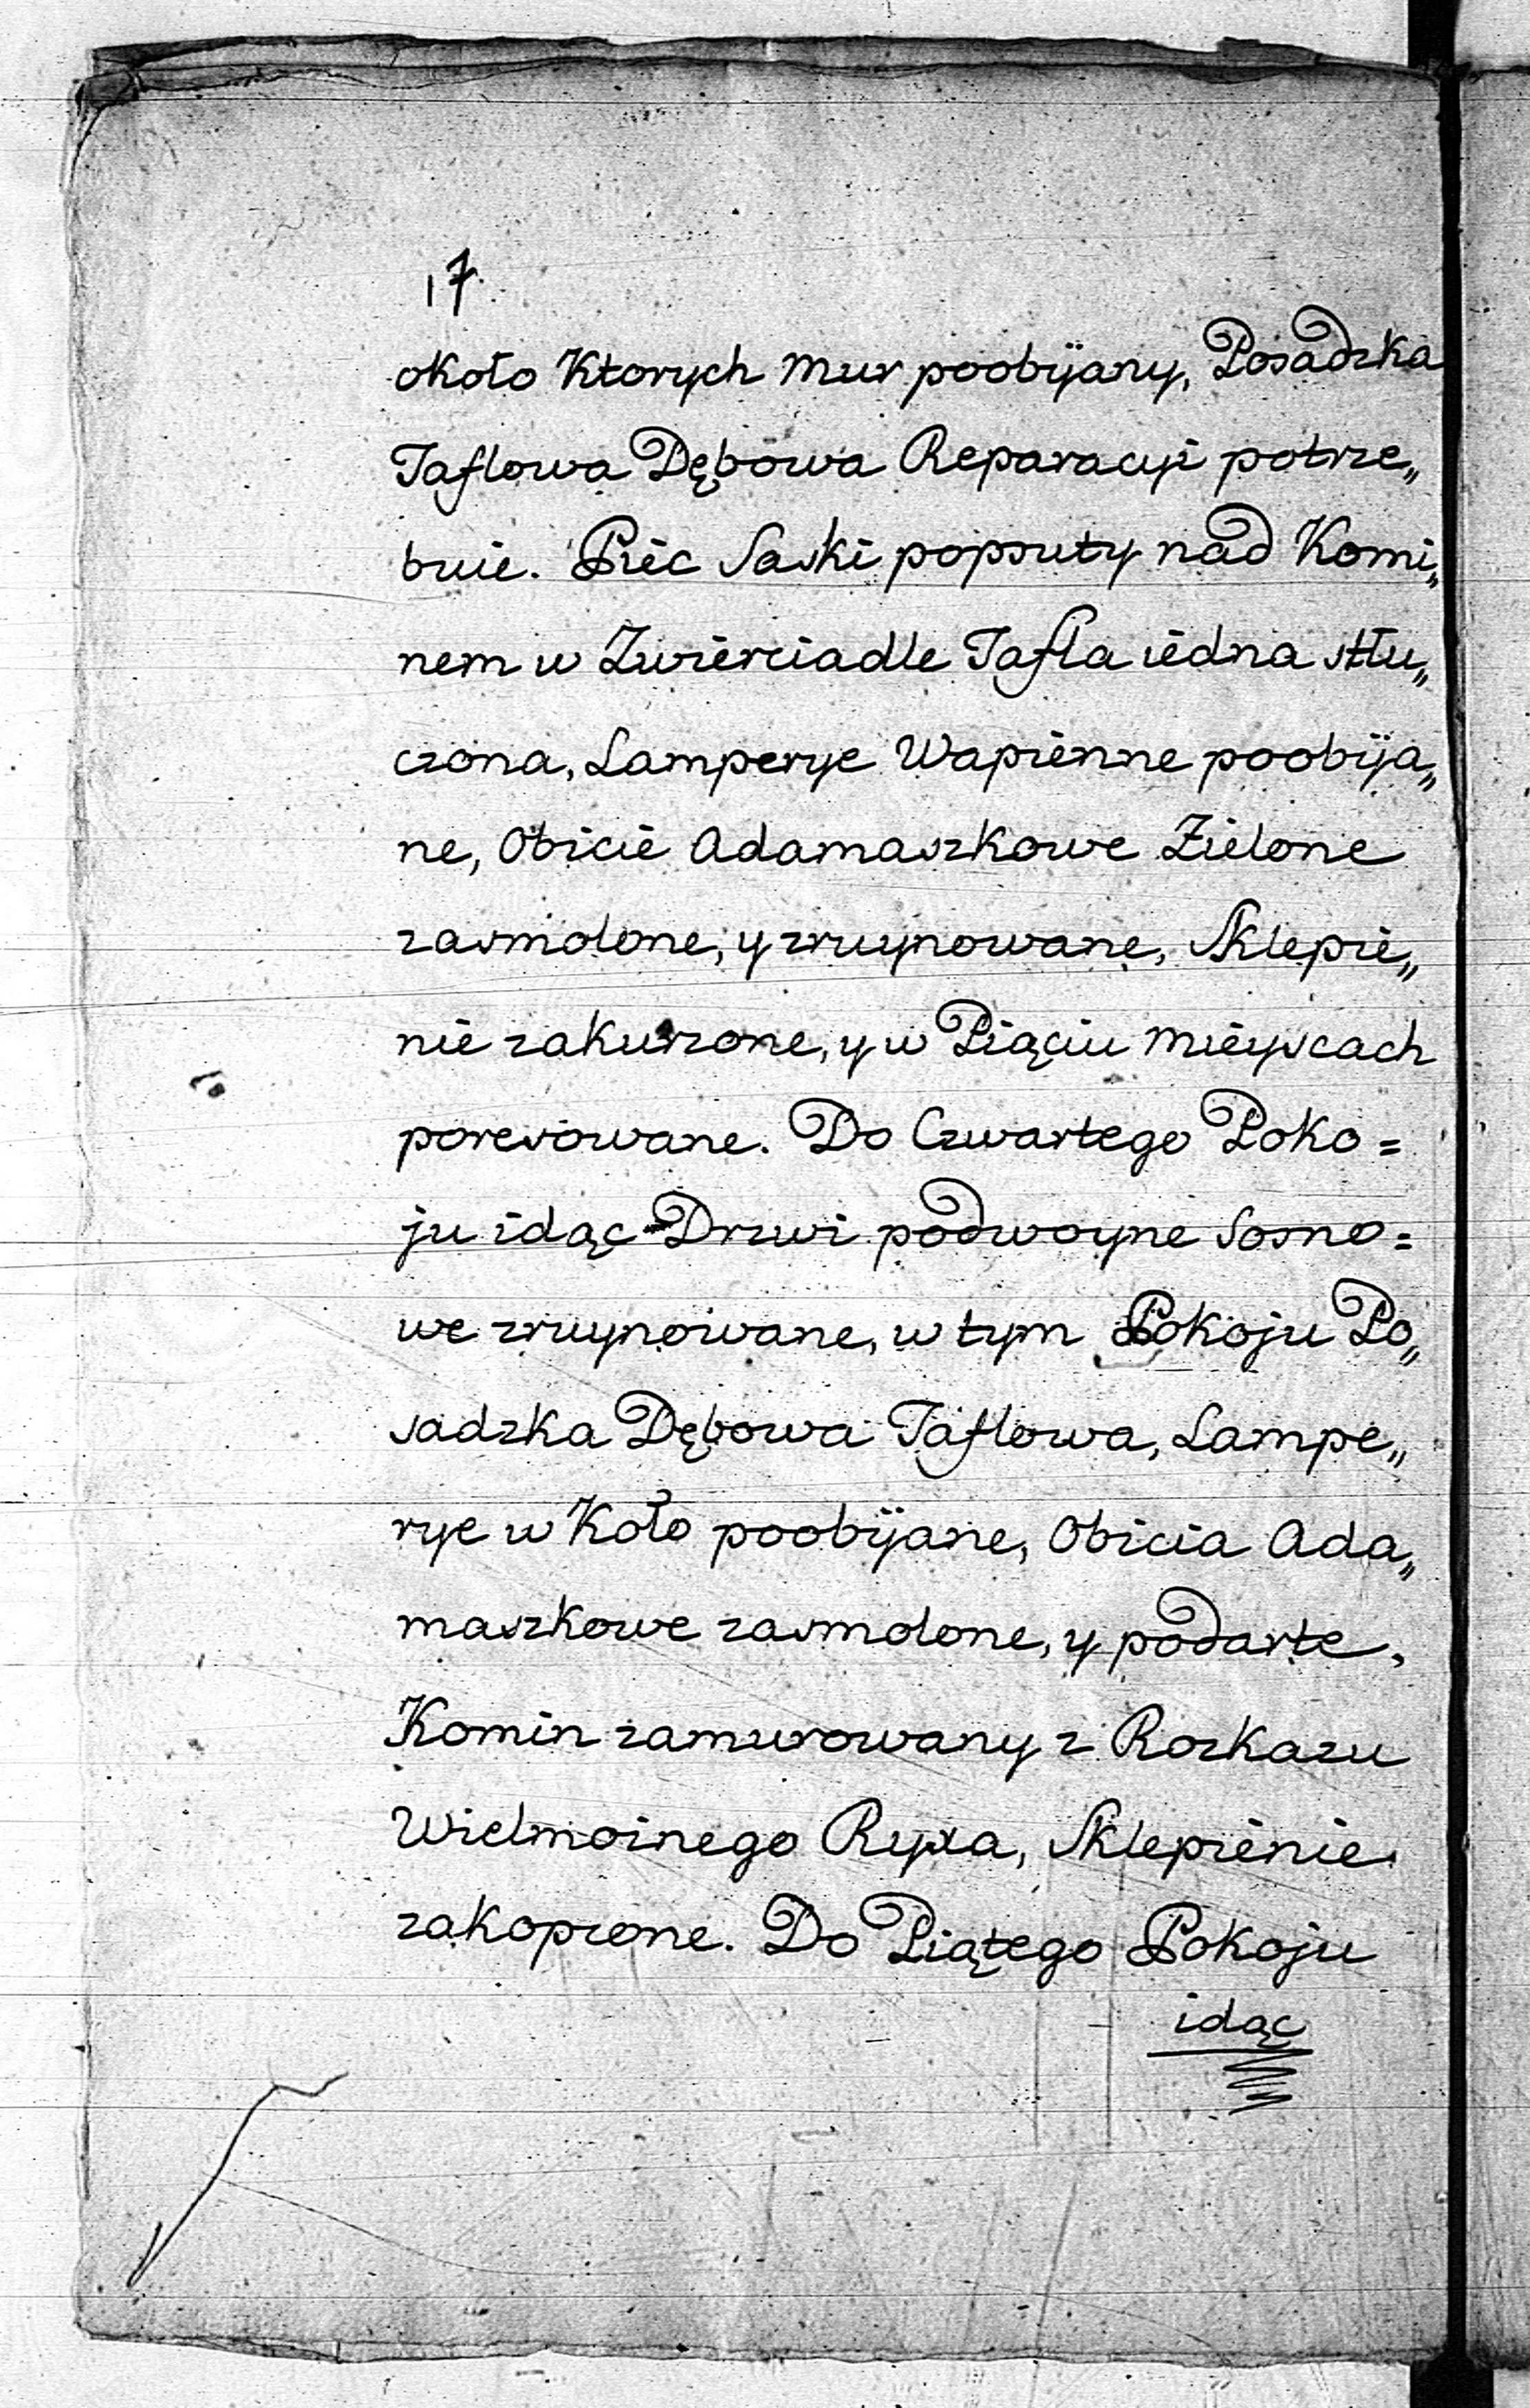 17.
około Ktorych mur poobijany, Posadzka
Taflowa Dębowa Reparacyi potrze„
buie. Piec Saski popsuty nad Komi„
nem w Zwierciadle Tafla iedna stłu„
czona, Lamperye Wapienne poobija„
ne, Obicie Adamaszkowe Zielone
zasmolone, y zruynowane, Sklepie„
nie zakurzone, y w Piąciu mieyscach
porysowane. Do Czwartego Poko=
ju idąc Drzwi podwoyne Sosno=
we zruynowane, w tym Pokoju Po„
sadzka Dębowa Taflowa, Lampe„
rye w Koło poobijane, Obicia Ada„
maszkowe zasmolone, y podarte,
Komin zamurowany z Rozkazu
Wielmoznego Ryxa, Sklepienie
zakopcone. Do Piątego Pokoju
idąc